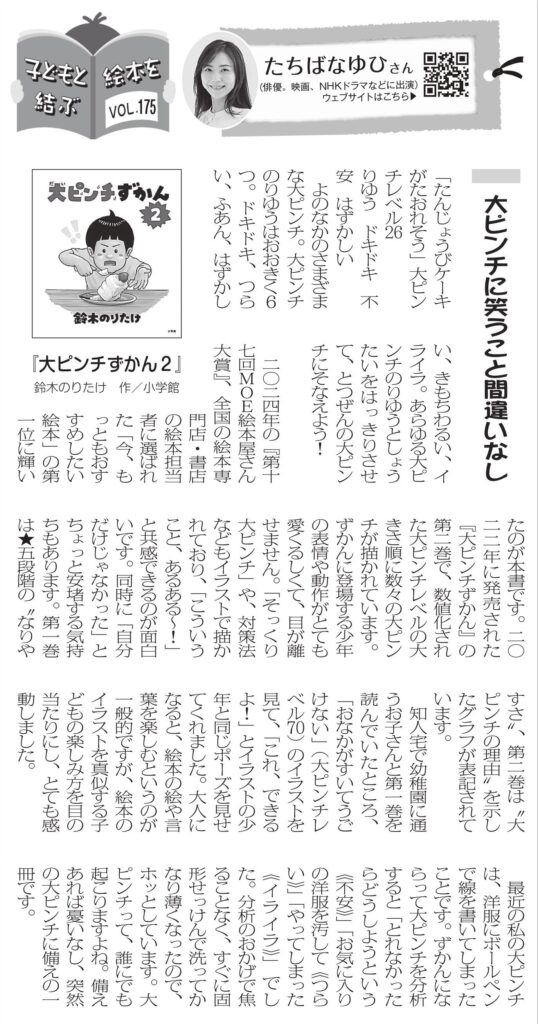 子どもと
絵本を
結ぶ
VOL.175
たちばなゆひさん
(俳優。映画、NHKドラマなどに出演)
ウェブサイトはこちら▶
大ピンチに笑うこと間違いなし
大ピンチずかん
2
鈴木のりたけ
『大ピンチずかん2』
鈴木のりたけ 作/小学館
「たんじょうびケーキ
がたおれそう」大ピン
チレベル26
りゆう ドキドキ 不
安 はずかしい
よのなかのさまざま
な大ピンチ。大ピンチ
のりゆうはおおきく6
つ。ドキドキ、つら
い、ふあん、はずかし
い、きもちわるい、イ
ライラ。あらゆる大ピ
ンチのりゆうとしょう
たいをはっきりさせ
て、とつぜんの大ピン
チにそなえよう!
二〇二四年の『第十
七回MOE絵本屋さん
大賞』、全国の絵本専
門店・書店
の絵本担当
者に選ばれ
た「今、も
っともおす
すめしたい
絵本」の第
一位に輝い
たのが本書です。二〇
二二年に発売された
『大ピンチずかん』の
第二巻で、数値化され
た大ピンチレベルの大
きさ順に数々の大ピン
チが描かれています。
ずかんに登場する少年
の表情や動作がとても
愛くるしくて、目が離
せません。「そっくり
大ピンチ」や、対策法
などもイラストで描か
れており、「こういう
こと、あるある〜!」
と共感できるのが面白
いです。同時に「自分
だけじゃなかった」と
ちょっと安堵する気持
ちもあります。第一巻
は★五段階の〝なりや
すさ〟、第二巻は〝大
ピンチの理由〟を示し
たグラフが表記されて
います。
知人宅で幼稚園に通
うお子さんと第一巻を
読んでいたところ、
「おなかがすいてうご
けない」(大ピンチレ
ベル70)のイラストを
見て、「これ、できる
よ!」とイラストの少
年と同じポーズを見せ
てくれました。大人に
なると、絵本の絵や言
葉を楽しむというのが
一般的ですが、絵本の
イラストを真似する子
どもの楽しみ方を目の
当たりにし、とても感
動しました。
最近の私の大ピンチ
は、洋服にボールペン
で線を書いてしまった
ことです。ずかんにな
らって大ピンチを分析
すると「とれなかった
らどうしようという
《不安》」「お気に入り
の洋服を汚して《つら
い》」「やってしまった
《イライラ》」でし
た。分析のおかげで焦
ることなく、すぐに固
形せっけんで洗ってか
なり薄くなったので、
ホッとしています。大
ピンチって、誰にでも
起こりますよね。備え
あれば憂いなし、突然
の大ピンチに備えの一
冊です。